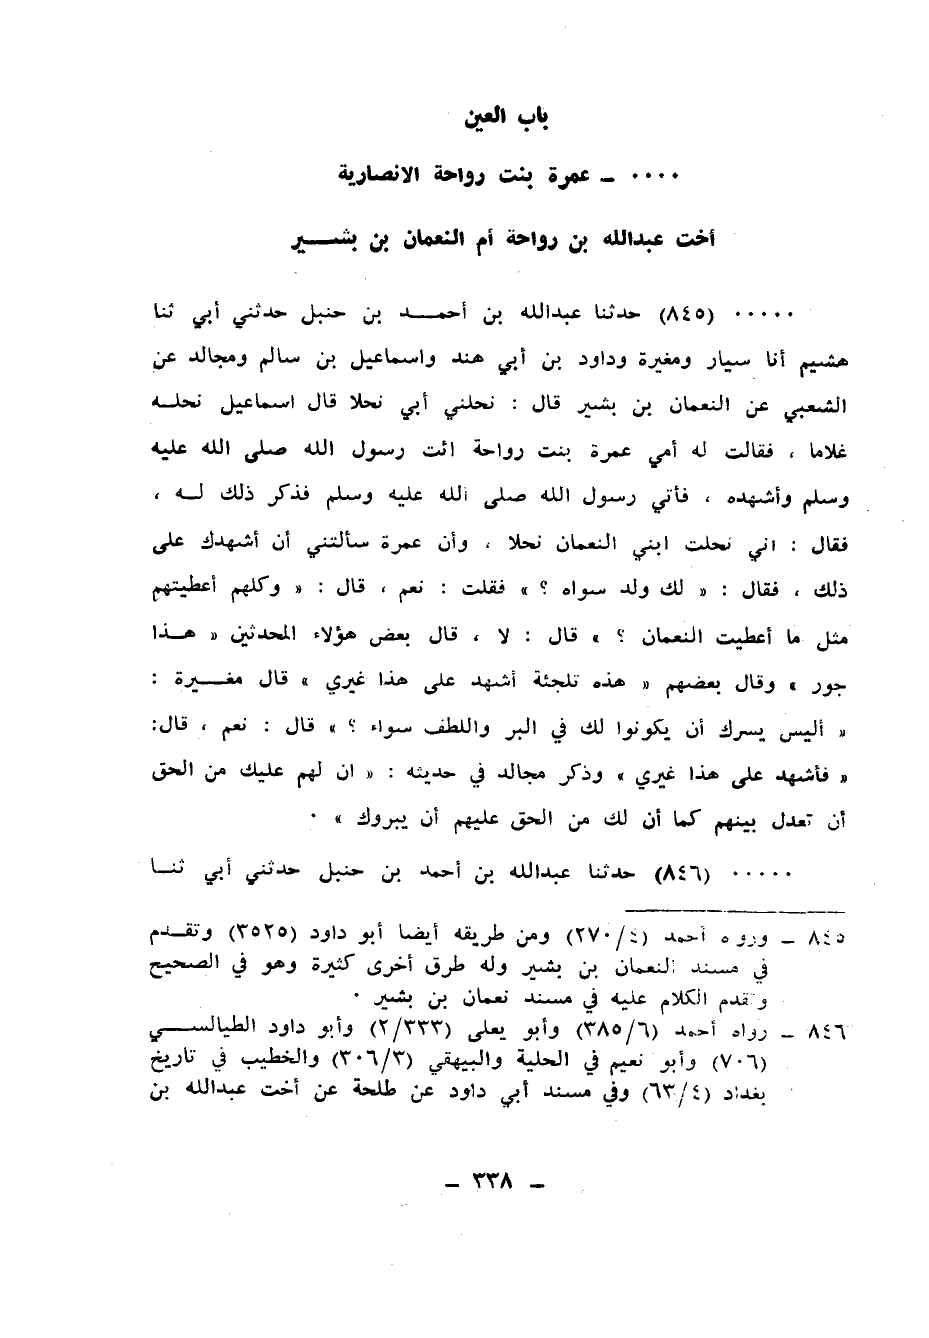 باب العين
٠٠٠٠ ـ عمرة بنت رواحة الانصارية
أخت عبدالله بن رواحة أم النعمان بن بشـــير
٠٠٠٠٠ (٨٤٥) حدثنا عبدالله بن أحمـــد بن حنبل حدثني أبي ثنا
هشيم أنا سيار ومغيرة وداود بن أبي هند واسماعيل بن سالم ومجالد عن
الشعبي عن النعمان بن بشير قال : نحلني أبي نحلا قال اسماعيل نحلــه
غلاما ، فقالت له أمي عمرة بنت رواحة ائت رسول الله صلى الله عليه
وسلم وأشهده ، فأتي رسول الله صلى الله عليه وسلم فذكر ذلك لــه ،
فقال : اني نحلت ابني النعمان نحلا ، وأن عمرة سألتني أن أشهدك على
ذلك ، فقال : « لك ولد سواه ؟ » فقلت : نعم ، قال : « وكلهم أعطيتهم
مثل ما أعطيت النعمان ؟ » قال : لا ، قال بعض هؤلاء المحدثين « هــذا
جور » وقال بعضهم « هذه تلجئة أشهد على هذا غيري » قال مغـــيرة :
« أليس يسرك أن يكونوا لك في البر واللطف سواء ؟ » قال : نعم ، قال:
« فأشهد على هذا غيري » وذكر مجالد في حديثه : « ان لهم عليك من الحق
أن تعدل بينهم كما أن لك من الحق عليهم أن يبروك » ٠
٠٠٠٠٠ (٨٤٦) حدثنا عبدالله بن أحمد بن حنبل حدثني أبي ثنــا
٨٤٥ ـ ورواه أحمد (٢٧٠/٤) ومن طريقه أيضا أبو داود (٣٥٢٥) وتقــدم
في مسند النعمان بن بشير وله طرق أخرى كثيرة وهو في الصحيح
وتقدم الكلام عليه في مسند نعمان بن بشير ٠
٨٤٦ ـ رواه أحمد (٣٨٥/٦) وأبو يعلى (٢/٣٣٣) وأبو داود الطيالســـي
(٧٠٦) وأبو نعيم في الحلية والبيهقي (٣٠٦/٣) والخطيب في تاريخ
بغداد (٦٣/٤) وفي مسند أبي داود عن طلحة عن أخت عبدالله بن
ـ ٣٣٨ ـ